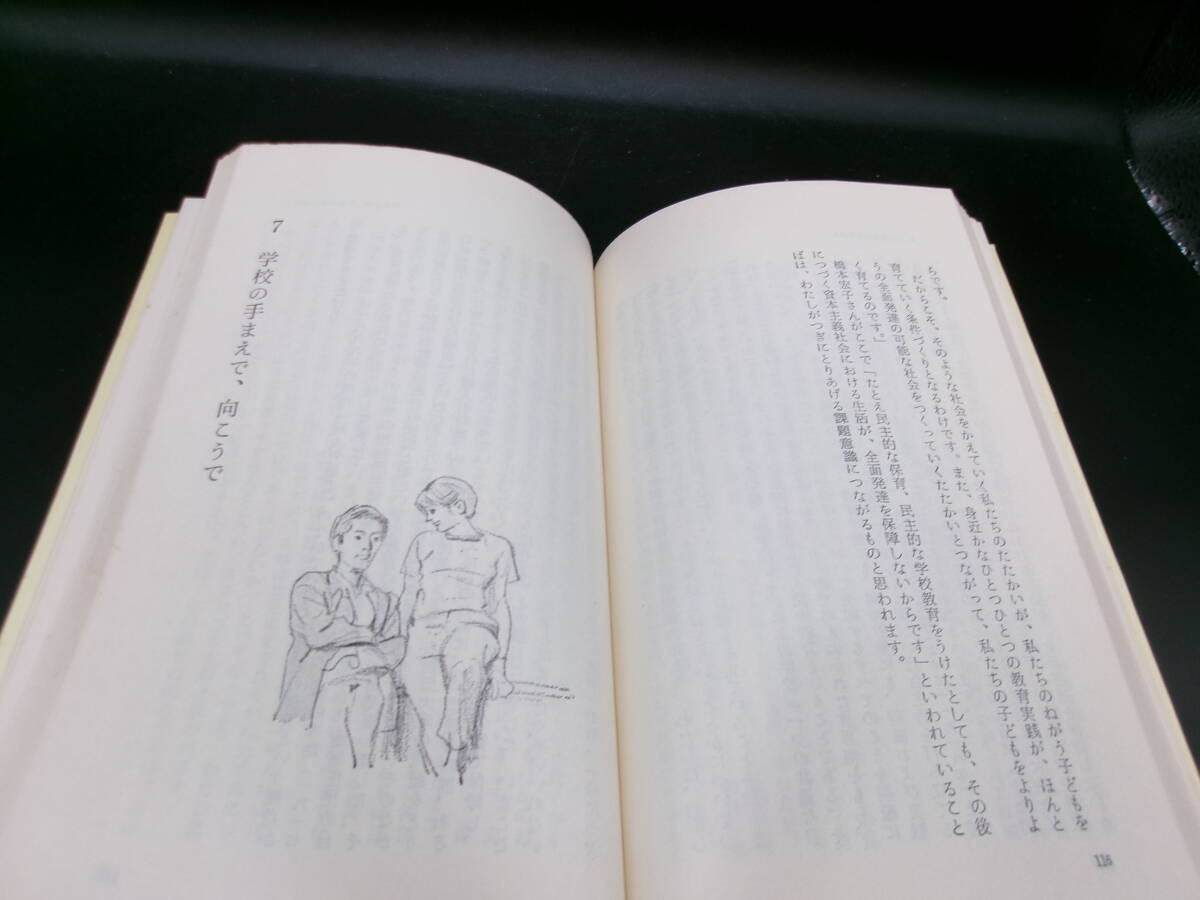 ちです。
だからこそ、そのような社会をかえていく私たちのたたかいが、私たちのねがう子どもを
育てていく条件づくりとなるわけです。また、身近かなひとつひとつの教育実践が、ほんと
うの全面発達の可能な社会をつくっていくたたかいとつながって、私たちの子どもをよりよ
く育てるのです。」
橋本宏子さんがここで「たとえ民主的な保育、民主的な学校教育をうけたとしても、その後
につづく資本主義社会における生活が、全面発達を保障しないからです」といわれていること
ばは、わたしがつぎにとりあげる課題意識につながるものと思われます。
116
7 学校の手まえで、向こうで